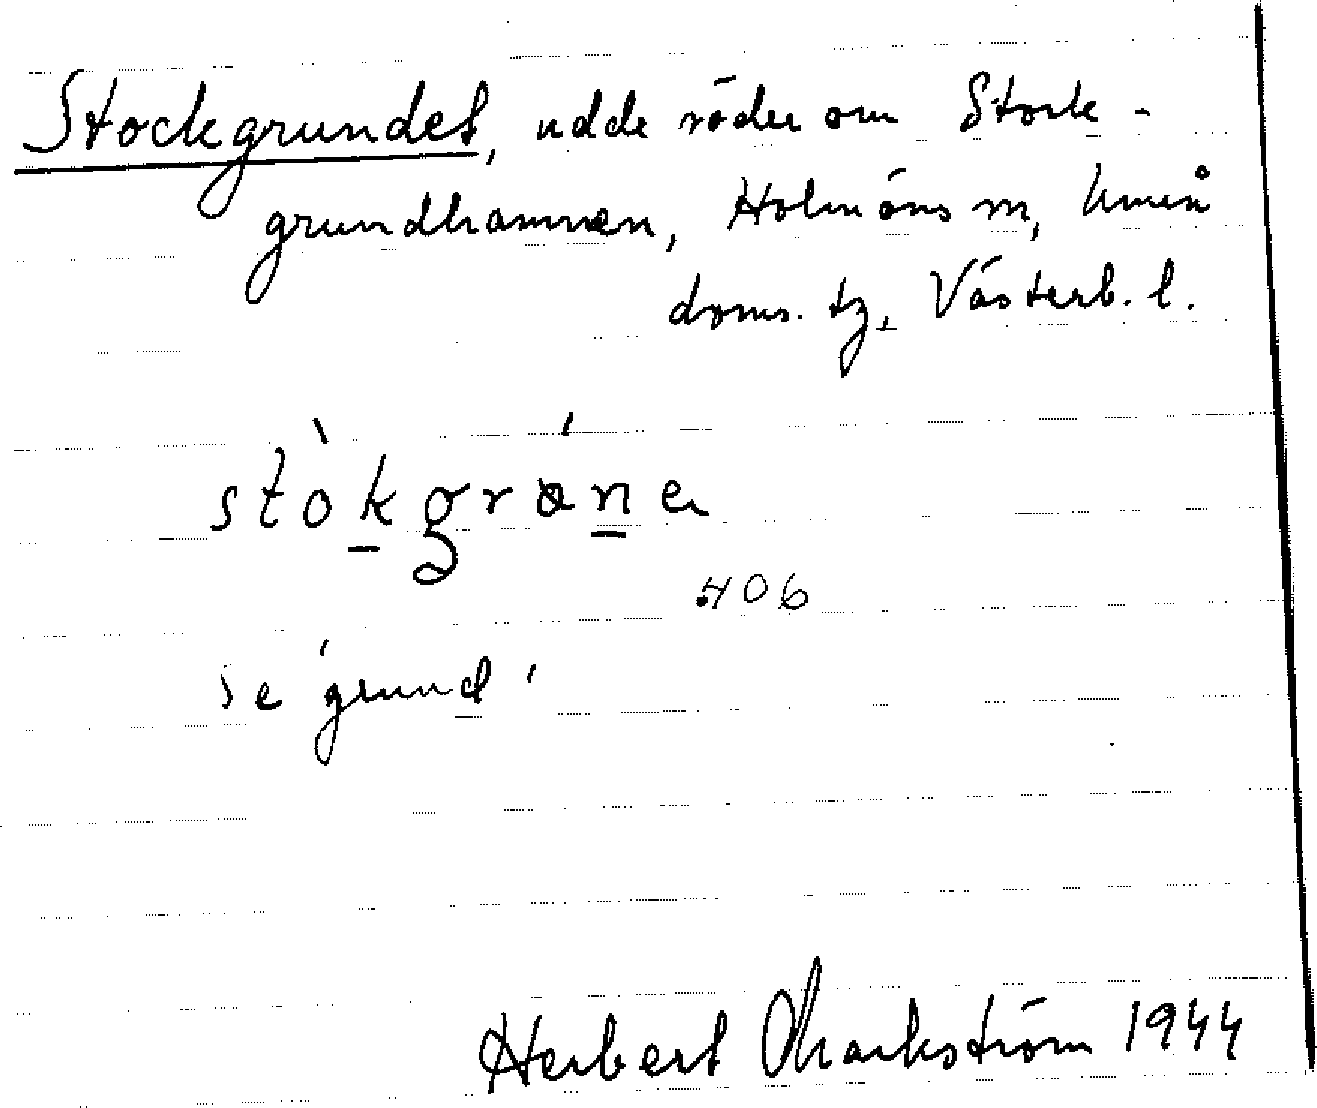 Stockgrundet, udde söder om Stock-
grundhamnen, Holmöns sn, Umeå
doms. tg, Västerb. l.
406
se 'grund'
Herbert Markström 1944